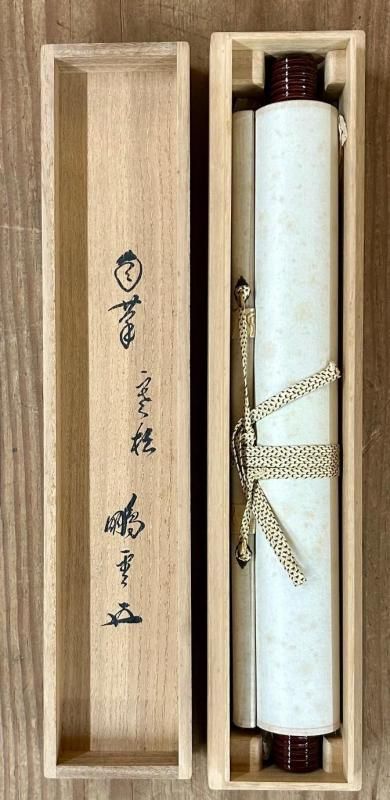 自筆 寒松 鵬雲